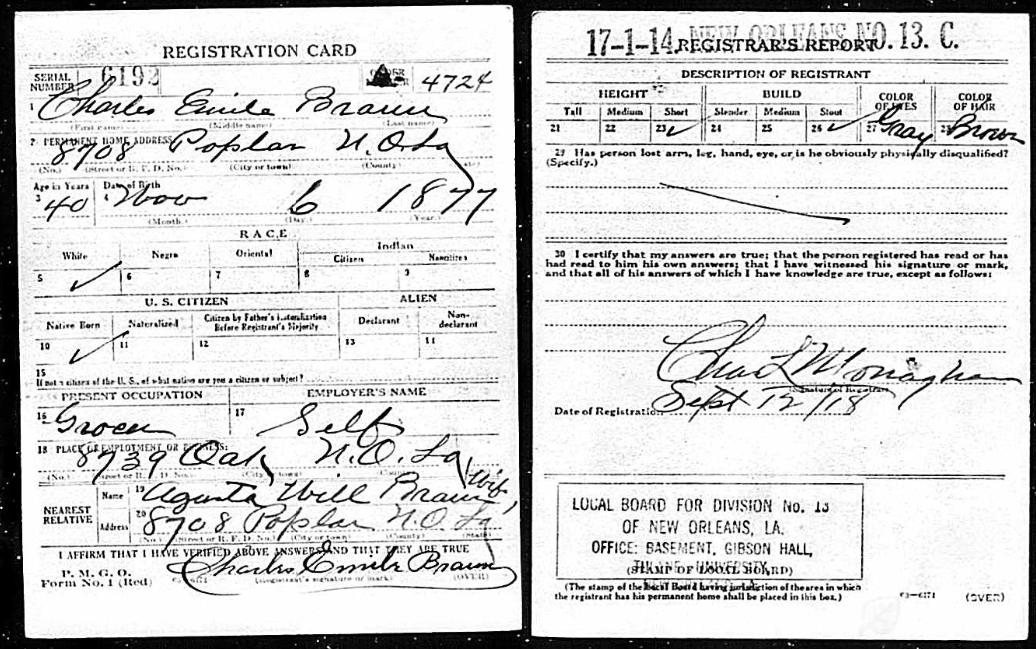 REGISTRATION CARD
SERIAL NUMBER 6192 4724
1 Charles Emile Braun
(First name) (Middle name) (Last name)
2 PERMANENT HOME ADDRESS:
8708 Poplar N.O. La
(No.) (Street or R. F. D. No.) (City or town) (County)
Age in Years Date of Birth
3 40 4 Nov 6 1877
(Month.) (Day.) (Year.)
RACE
White Negro Oriental Indian
Citizen Noncitizen
5 ✓ 6 7 8 9
U. S. CITIZEN ALIEN
Native Born Naturalized Citizen by Father's Naturalization Before Registrant's Majority Declarant Non-declarant
10 ✓ 11 12 13 14
15
If not a citizen of the U. S., of what nation are you a citizen or subject?
PRESENT OCCUPATION EMPLOYER'S NAME
16 Grocer 17 Self
18 PLACE OF EMPLOYMENT OR BUSINESS:
8739 Oak N.O. La
(No.) (Street or R. F. D. No.) (City or town) (County)
NEAREST RELATIVE
Name 19 Agusta Will Braun Wife
Address 20 8708 Poplar N.O. La
(No.) (Street or R. F. D. No.) (City or town) (County) (State)
I AFFIRM THAT I HAVE VERIFIED ABOVE ANSWERS AND THAT THEY ARE TRUE
P. M. G. O.
Form No. 1 (Red) Charles Emile Braun
(Registrant's signature or mark) (OVER)
17-1-14 NEW ORLEANS NO. 13. C.
REGISTRAR'S REPORT
DESCRIPTION OF REGISTRANT
HEIGHT BUILD COLOR OF EYES COLOR OF HAIR
Tall Medium Short Slender Medium Stout
21 22 23 ✓ 24 25 26 ✓ 27 Gray 28 Brown
29 Has person lost arm, leg, hand, eye, or is he obviously physically disqualified?
(Specify.)
30 I certify that my answers are true; that the person registered has read or has
had read to him his own answers; that I have witnessed his signature or mark,
and that all of his answers of which I have knowledge are true, except as follows:
Chas L Monaghan
(Signature of Registrar)
Date of Registration Sept 12/18
LOCAL BOARD FOR DIVISION No. 13
OF NEW ORLEANS, LA.
OFFICE: BASEMENT, GIBSON HALL,
TULANE UNIVERSITY
(STAMP OF LOCAL BOARD)
(The stamp of the Local Board having jurisdiction of the area in which
the registrant has his permanent home shall be placed in this box.)
03-6171 (OVER)